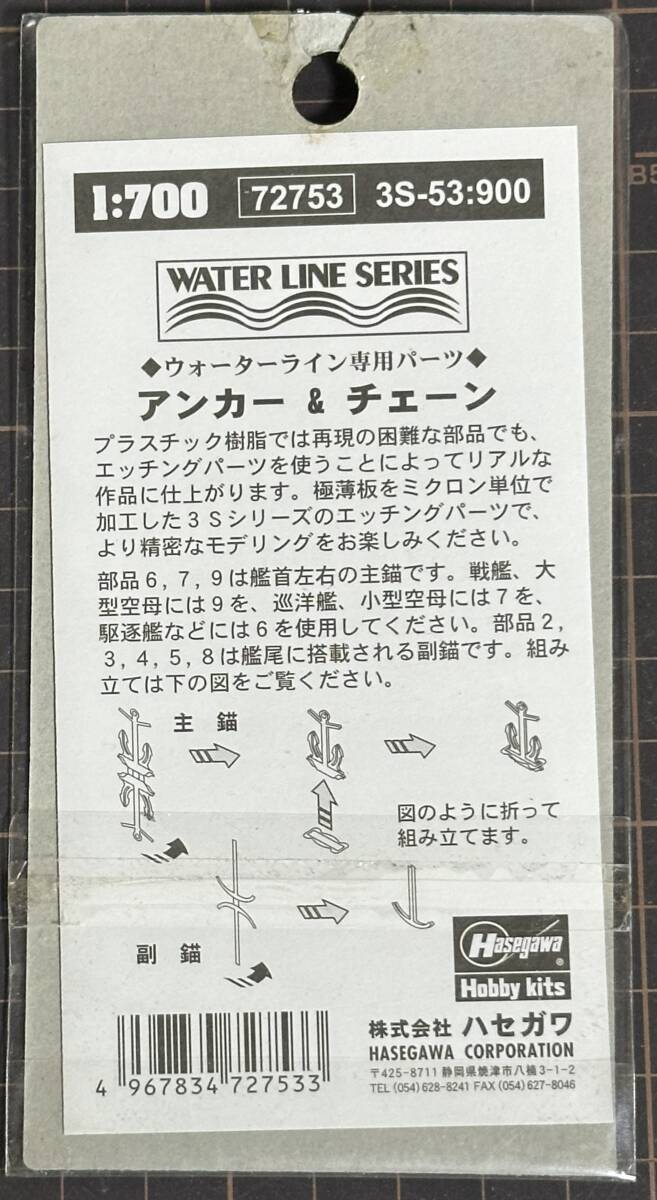 1:700 72753 3S-53:900
WATER LINE SERIES
◆ウォーターライン専用パーツ◆
アンカー & チェーン
プラスチック樹脂では再現の困難な部品でも、
エッチングパーツを使うことによってリアルな
作品に仕上がります。極薄板をミクロン単位で
加工した3Sシリーズのエッチングパーツで、
より精密なモデリングをお楽しみください。
部品6,7,9は艦首左右の主錨です。戦艦、大
型空母には9を、巡洋艦、小型空母には7を、
駆逐艦などには6を使用してください。部品2,
3,4,5,8は艦尾に搭載される副錨です。組み
立ては下の図をご覧ください。
主 錨
図のように折って
組み立てます。
副 錨
Hasegawa
®
Hobby kits
株式会社 ハセガワ
HASEGAWA CORPORATION
〒425-8711 静岡県焼津市八楠3-1-2
TEL (054) 628-8241 FAX (054) 627-8046
4 967834 727533